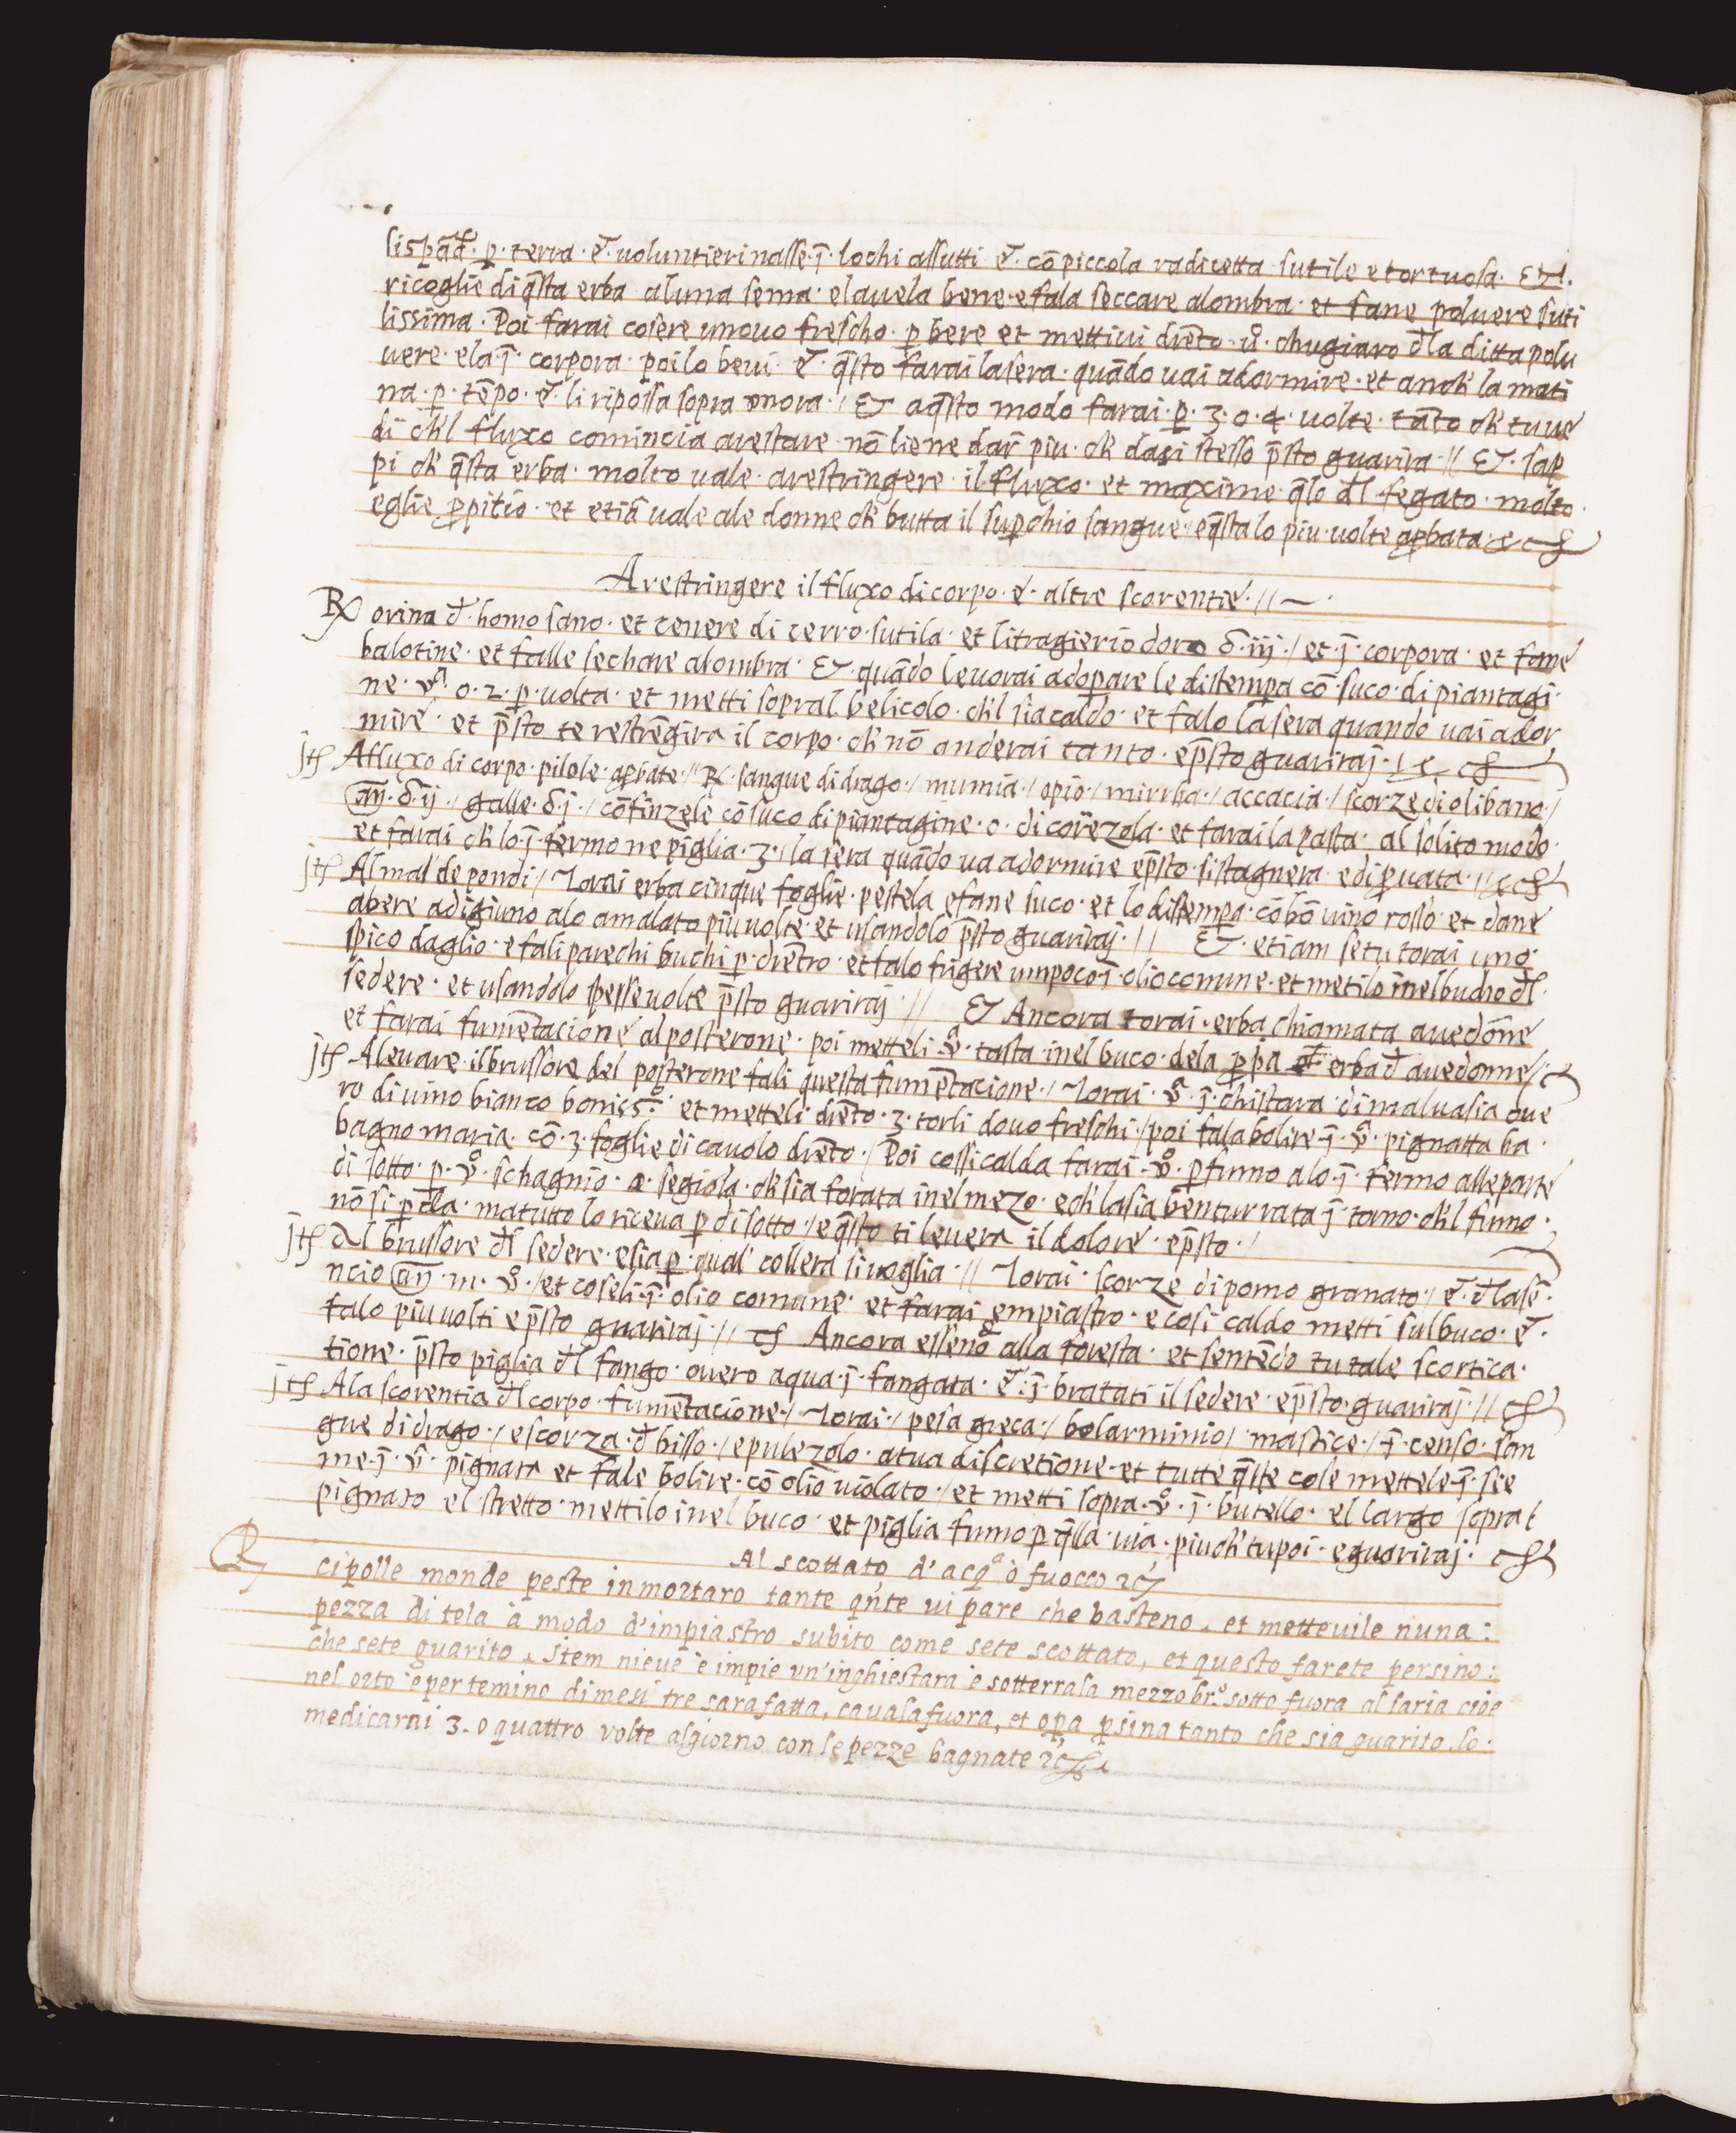 si spād̄. p̱. terra. e. voluntieri nasse. ī. lochi assutti e. cō piccola radicetta sutile e tortuosa. Et.
ricoglie di q̄sta erba aluna sema. e lavela bene. e fala seccare alombra. et fane polvere suti
lissima. Poi farai cosere unovo frescho. p̱ bere et mettivi drēto. uͦ. chugiaro d̄la ditta polu
vere. ela. ī. corpora. poi lo bevi. e. q̄sto farai la sera. quādo vai adormire. et anch' la mati
na. p̱. tēpo. e. li ripossa sopra unora. / Et aq̄sto modo farai. p̱. 3. o. 4. volte. tāto ch' tu ve
di ch'l fluxo comincia arestare. nō li ene dar̄ piu. ch' dasi stesso p̄sto guarira // Et. sap
pi ch' q̄sta erba. molto vale. arestringere. il. fluxo. et maxime. q̄lo d̄l fegato. molto.
eglie p̱pitio. et etiā vale ale donne ch' butta il sup̱chio sangue. / e q̄sta lo piu volte ap̱bata
Arestringere il fluxo di corpo. e. altre scorentie. //
Rx orina d̄. homo sano. et cenere di cerro. sutila. et litragierio doro δ. iij. / et ī. corpora. et fane
balotine. et falle sechare alombra. Et. quādo le vorai adop̱are le distemp̱a cō. suco. di piantagi.
ne. vͣ. o. 2. p̱. volta. et metti sopral belicolo. ch'l sia caldo. et falo la sera quando vai ador
mire. et p̄sto te restrēgira il corpo. ch' nō anderai tanto. e p̄sto guariraj. /
jtē Afluxo di corpo. pilole. ap̱bate // Rx. sangue di drago. / mumia. / opio. / mirrha. / accacia. / scorze di olibano. /
añ. δ. ij. / galle. δ. j. / cōfinzele cō suco di piantagine. o. di corezola. et farai la pasta. al solito modo.
et farai ch' lo. ī. fermo ne piglia. 3. / la sera quādo va adormire e p̄sto. si stagnera e di p̱vata. //
jtē Al mal' de pondi / Torai erba cinque foglie. pestela e fane suco. et lo distemp̱a. cō bō vino rosso. et dane
abere adigiuno alo amalato piu volte. et usandolo p̄sto guariraj. // Et. etiam se tu torai uno.
spico daglio. e fali parechi buchi p̱. drētro. et falo frigere un poco ī. olio comune. et metilo inel bucho d̄l.
sedere. et usandolo spesse volte p̄sto guariraj. // Et Ancora torai. erba chiamata avedōne
et farai fumētacione al posterone. poi metteli. vͣ. tasta. inel buco. dela p̱pia erba d̄ avedonne /
jtē A levare. il brussore del posterone fali questa fumētacione. / Torai. vͣ. ī. chistara. di malvasia ove
ro di vino bianco boniss.ᵒ et metteli. drēto. 3. torli dovo freschi. / poi fala bolire. ī. vͣ. pignatta ba.
bagno maria. cō. 3. foglie di cavolo drēto. / Poi cossi calda farai. vͦ. p̱fumo alo. ī. fermo alle parte
di sotto. p̱. vͦ. schagnio. a. segiola. ch' sia forata inel mezo. e ch' la sia ben turrata ī torno. ch'l fumo.
nō si p̱da. ma tutto lo riceva p̱ di sotto. / e q̄sto ti levera il dolore. e p̄sto. /
jtē Al brussore d̄l sedere. e sia p̱. qual' collera si voglia. // Torai. scorze di pomo granato. / e. d̄ lasē.
ncio añ. m. vͦ. / et coseli. ī. olio comune. et farai empiastro. e cosi caldo metti sul buco. e.
falo piu volti e p̄sto guariraj. // Ancora essenō alla foresta. et sentēdo tu tale scortica.
tione. p̄sto piglia d̄l fango. overo aqua. ī. fangata. e. ī. bratati il sedere. e p̄sto. guariraj. //
jtē A la scorentia d̄l corpo. fumētacione. / Torai. / pesa greca. / bolarminio / mastice. / ī. censo. san
gue di drago. / e scorza. d̄ bisso. / e pulezolo. a tua discretione. et tutte q̄ste cose mettele. ī. sie
me. ī. vͣ. pignata et fale bolire. cō olio violato. / et metti sopra. vͦ. ī. butello. el largo sopra l
pignato el stretto. mettilo inel buco. et piglia fumo p̱ q̄lla via. piu ch' tu poi. e guariraj.
Al scottato d'acqᵃ ò fuocco
Rx cipolle monde peste in mortaro tante qn̄te vi pare che basteno. et mettevile n'una:
pezza di tela à modo d'impiastro subito come sete scottato, et questo farete persino:
che sete guarito. Item nieve è impie un'inghiestara è sotterrala mezzo br.ᵒ sotto fuora al'faria cioe
nel orto è per temino di mesi tre sara fatta, cavala fuora, et op̱a p̱sina tanto che sia guarito. lo.
medicarai 3. o quattro volte al giorno con le pezze bagnate